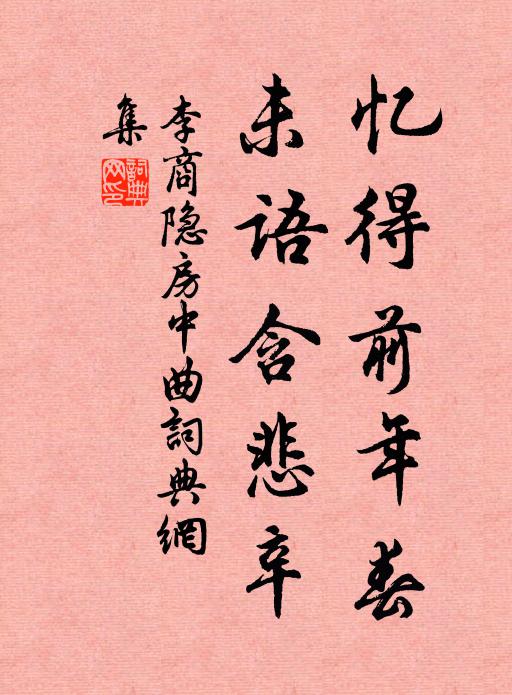 忆得前年春
未语含悲辛
李商隐房中曲詞典網
集
詞典
网印